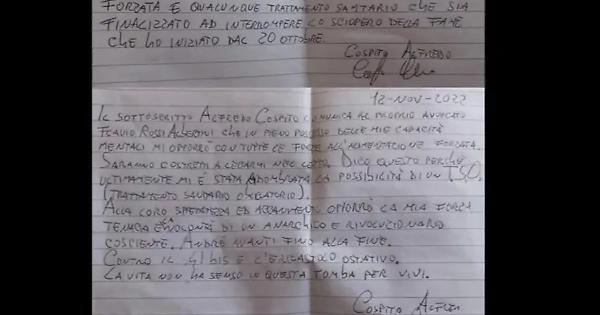 FORZATA E QUALUNQUE TRATTAMENTO SANITARIO CHE SIA
FINALIZZATO AD INTERROMPERE LO SCIOPERO DELLA FAME
CHE HO INIZIATO DAL 20 OTTOBRE.
COSPITO ALFREDO
12-NOV-2022
IL SOTTOSCRITTO ALFREDO COSPITO COMUNICA AL PROPRIO AVVOCATO
FLAVIO ROSSI ALBERTINI CHE IN PIENO POSSESSO DELLE MIE CAPACITÀ
MENTALI MI OPPORRÒ CON TUTTE LE FORZE ALL'ALIMENTAZIONE FORZATA.
SARANNO COSTRETTI A LEGARMI NEL LETTO. DICO QUESTO PERCHÉ
ULTIMAMENTE MI È STATA ADOMBRATA LA POSSIBILITÀ DI UN T.S.O.
(TRATTAMENTO SANITARIO OBBLIGATORIO).
ALLA LORO SPIETATEZZA ED ACCANIMENTO OPPORRÒ LA MIA FORZA
TENACIA E VOLONTÀ DI UN ANARCHICO E RIVOLUZIONARIO
COSCIENTE. ANDRÒ AVANTI FINO ALLA FINE.
CONTRO IL 41 BIS E L'ERGASTOLO OSTATIVO.
LA VITA NON HA SENSO IN QUESTA TOMBA PER VIVI.
COSPITO ALFREDO